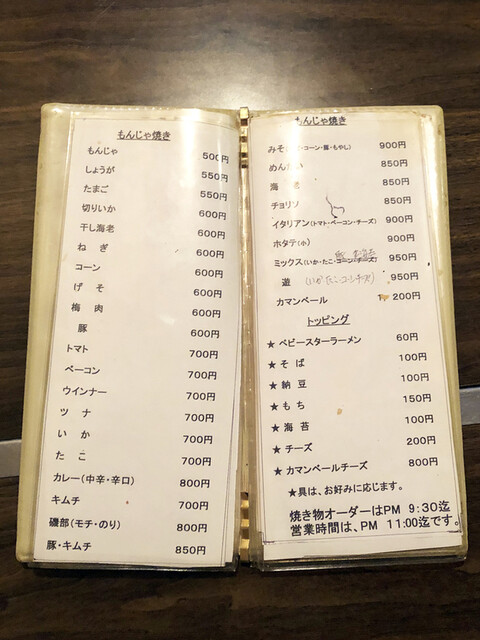 もんじゃ焼き
もんじゃ 500円
しょうが 550円
たまご 550円
切りいか 600円
干し海老 600円
ねぎ 600円
コーン 600円
げそ 600円
梅肉 600円
豚 600円
トマト 700円
ベーコン 700円
ウインナー 700円
ツナ 700円
いか 700円
たこ 700円
カレー(中辛・辛口) 800円
キムチ 700円
磯部(モチ・のり) 800円
豚・キムチ 850円
もんじゃ焼き
みそ(・コーン・豚・もやし) 900円
めんたい 850円
海老 850円
チョリソ 850円
イタリアン(トマト・ベーコン・チーズ) 900円
ホタテ(小) 900円
ミックス(いか・たこ・コーン・チーズ) 950円
遊 (いか・たこ・コーン・チーズ) 950円
カマンベール 1200円
トッピング
★ベビースターラーメン 60円
★そば 100円
★納豆 100円
★もち 150円
★海苔 100円
★チーズ 200円
★カマンベールチーズ 800円
★具は、お好みに応じます。
焼き物オーダーはPM 9:30迄
営業時間は、PM 11:00迄です。